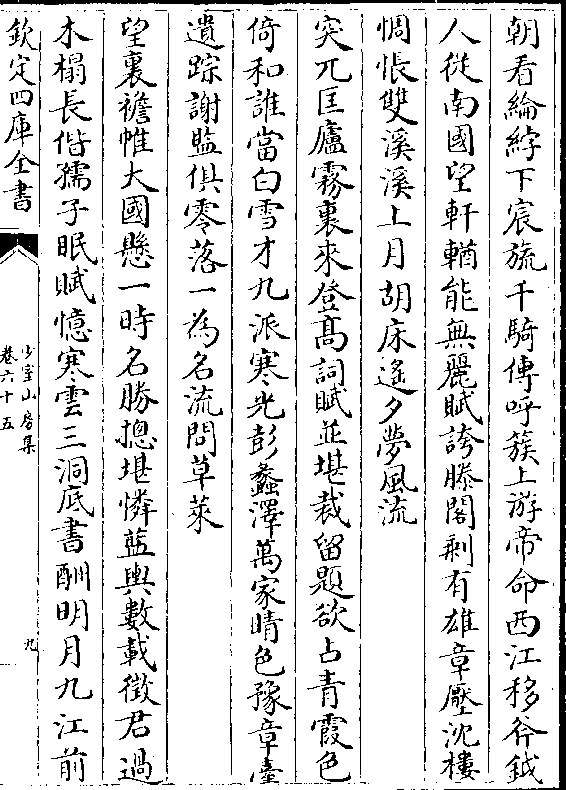 朝看綸綍下宸旒千騎傳呼簇上游帝命西江移斧鉞
人從南國望軒輶能無麗賦誇滕閣剰有雄章壓沈樓
惆悵雙溪溪上月胡床遙夕夢風流
突兀匡廬霧裏來登髙詞賦並堪裁留題欲占青霞色
倚和誰當白雪才九派寒光彭蠡澤萬家晴色豫章臺
遺踪謝監俱零落一為名流問草萊
望裏襜帷大國懸一時名勝摠堪憐藍輿數載徴君過
木榻長偕孺子眠賦憶寒雲三洞底書酬明月九江前
欽定四庫全書
少室山房集
卷六十五
九